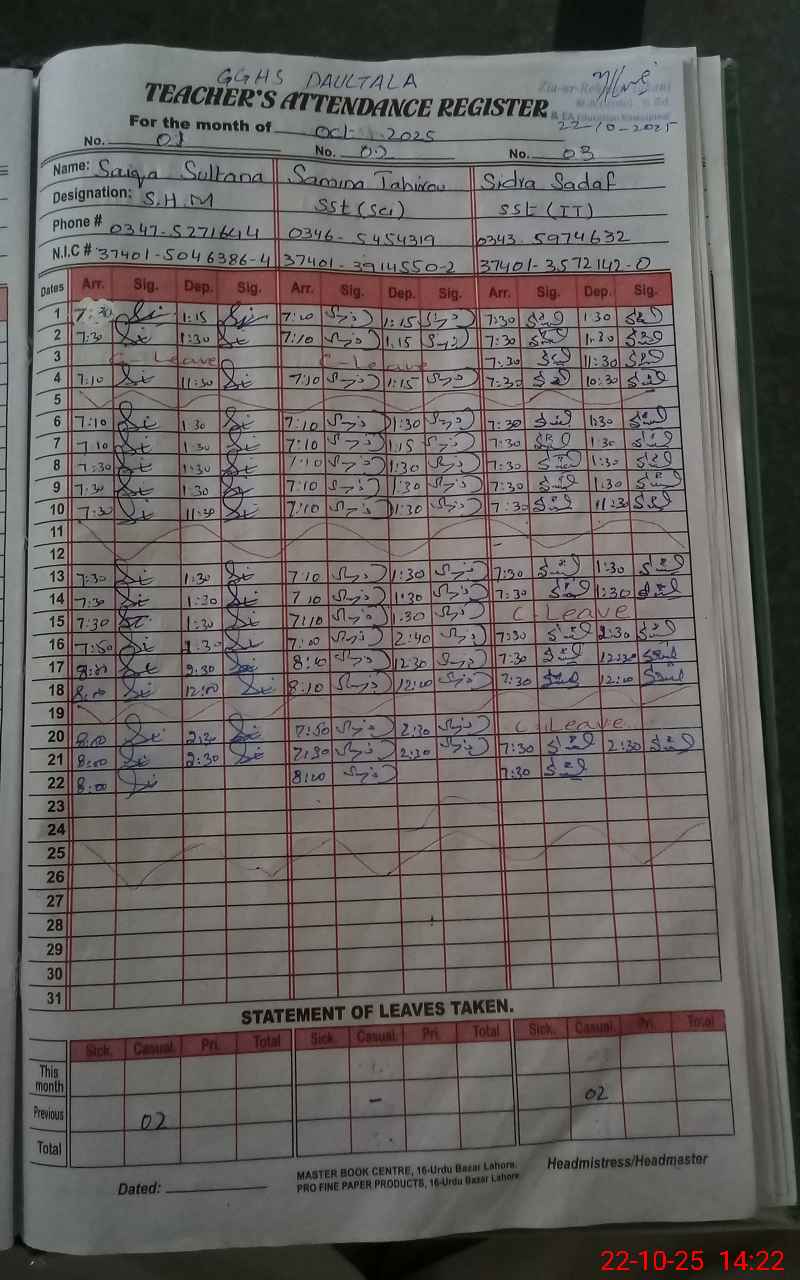 GGHS DAULTALA
TEACHER'S ATTENDANCE REGISTER
22-10-2025
For the month of Oct 2025
No. 01 No. 02 No. 03
Name: Saiqa Sultana Samina Sidra Sadaf
Designation: S.H.M SSt (Sci) SSt (IT)
Phone # 0347-5271644 0346-5454319 0343-5974632
N.I.C # 37401-5046386-4 37401-3914550-2 37401-3572142-0
Dates Arr. Sig. Dep. Sig. Arr. Sig. Dep. Sig. Arr. Sig. Dep. Sig.
1 7:30 1:15 7:10 1:15 7:30 1:30
2 7:30 1:30 7:10 1:15 7:30 1:30
3 C-Leave C-Leave 7:30 11:30
4 7:10 11:30 7:10 1:15 7:30 10:30
5
6 7:10 1:30 7:10 1:30 7:30 1:30
7 7:10 1:30 7:10 1:15 7:30 1:30
8 7:30 1:30 7:10 1:30 7:30 1:30
9 7:30 1:30 7:10 1:30 7:30 1:30
10 7:30 11:30 7:10 11:30 7:30 11:30
11
12
13 7:30 1:30 7:10 1:30 7:30 1:30
14 7:30 1:30 7:10 1:30 7:30 1:30
15 7:30 1:30 7:10 1:30 C-Leave
16 7:50 2:30 7:00 2:40 7:30 2:30
17 8:00 2:30 8:10 12:30 7:30 12:30
18 8:00 12:00 8:10 12:00 7:30 12:00
19
20 8:00 2:30 7:50 2:30 C-Leave
21 8:00 2:30 7:30 2:30 7:30 2:30
22 8:00 8:00 7:30
23
24
25
26
27
28
29
30
31
STATEMENT OF LEAVES TAKEN.
Sick. Casual. Pri. Total Sick. Casual. Pri. Total Sick. Casual. Pri. Total
This month - 02
Previous 02
Total
Dated:
MASTER BOOK CENTRE, 16-Urdu Bazar Lahore.
PRO FINE PAPER PRODUCTS, 16-Urdu Bazar Lahore
Headmistress/Headmaster
22-10-25 14:22